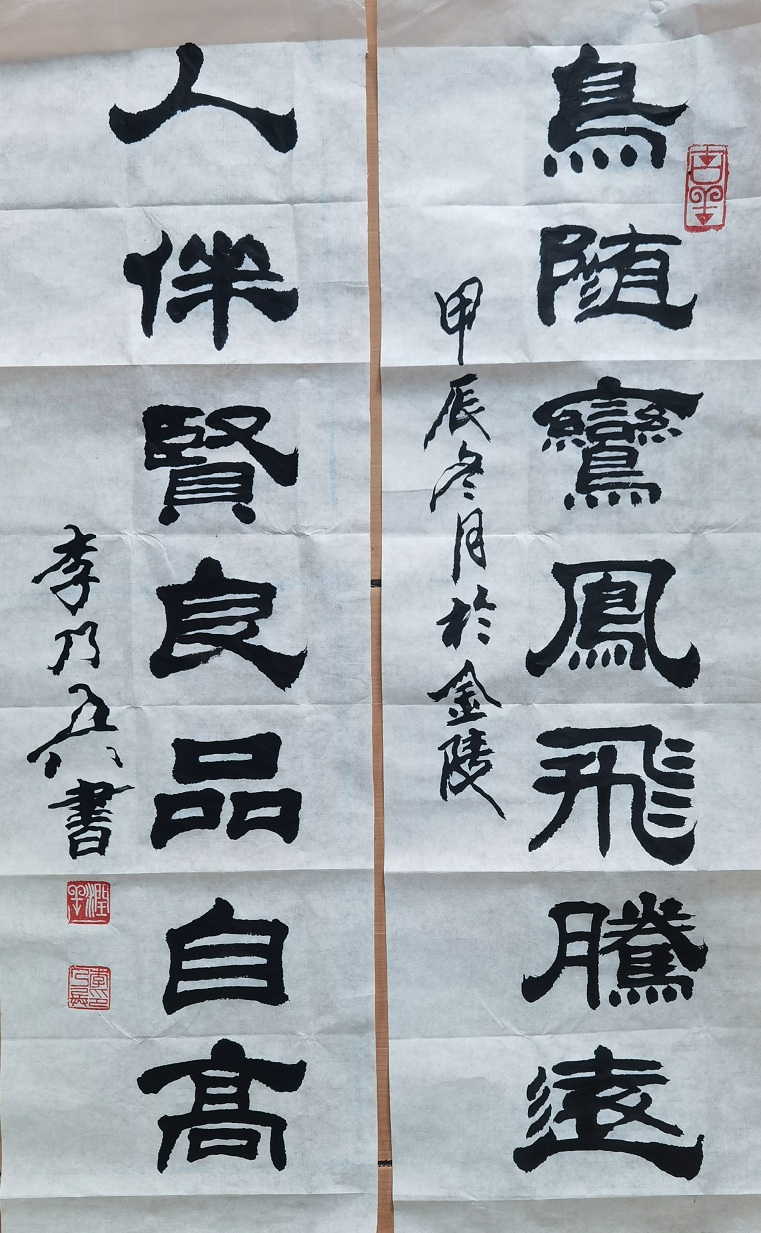 鳥随鸞鳳飛騰遠
甲辰冬月於金陵
人伴賢良品自高
李乃兵書